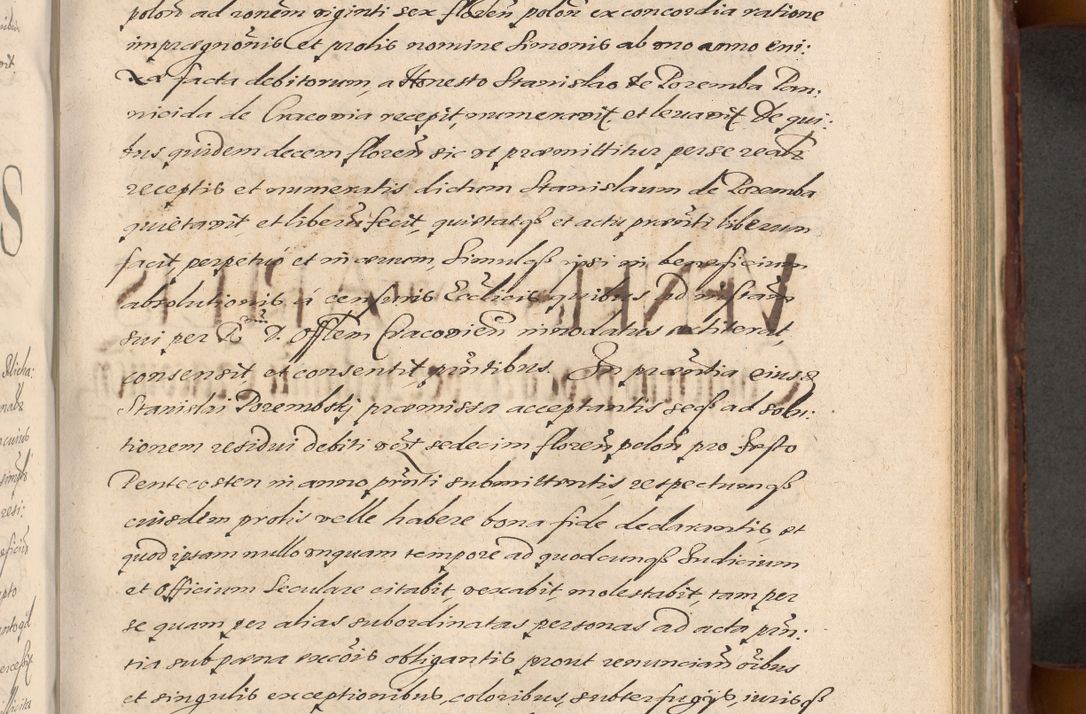 polon̄ ad ronem viginti sex floren̄ polon̄ ex concordia ratione
imprægnōnis et prolis nomine Simonis ab mo anno eni:
xa facta debitorum, a Honesto Stanislao de Poremba Pan:
nicida de Cracovia recepit, numeravit, et levavit. De qui:
bus quidem decem floren̄ sic ut præmittitur per se realr
receptis et numeratis dictum Stanislaum de Poremba
quietavit et liberū fecit, quietatqȝ et actu præn̄ti liberum
facit, perpetuó et in ævum, Simulqȝ ipsi in beneficium
absolutionis á censuris Ecclīcis quibus ad instan̄
sui per R. D. Offlem Cracovien̄ innodatus extiterat,
consensit, et consentit, prn̄tibus. In præsn̄tia eiusd
Stanislai Porembskj præmissa acceptantis seqȝ ad solu:
tionem residui debiti vizt sedecim floren̄ polon̄ pro Festo
Pentecosten in anno prn̄ti submittentis respectumqȝ
eiusdem prolis velle habere bona fide declarantis et
quod ipsam nullo unquam tempore ad quodcunqȝ Iudicium
et Officium Seculare citabit, vexabit, molestabit, tam per
se quam per alias subordinatas personas ad acta prn̄:
tia sub pæna excōis obligantis prout renuncian̄ oībus
et singulis exceptionibus, coloribus, subterfugijs, iurisqȝ